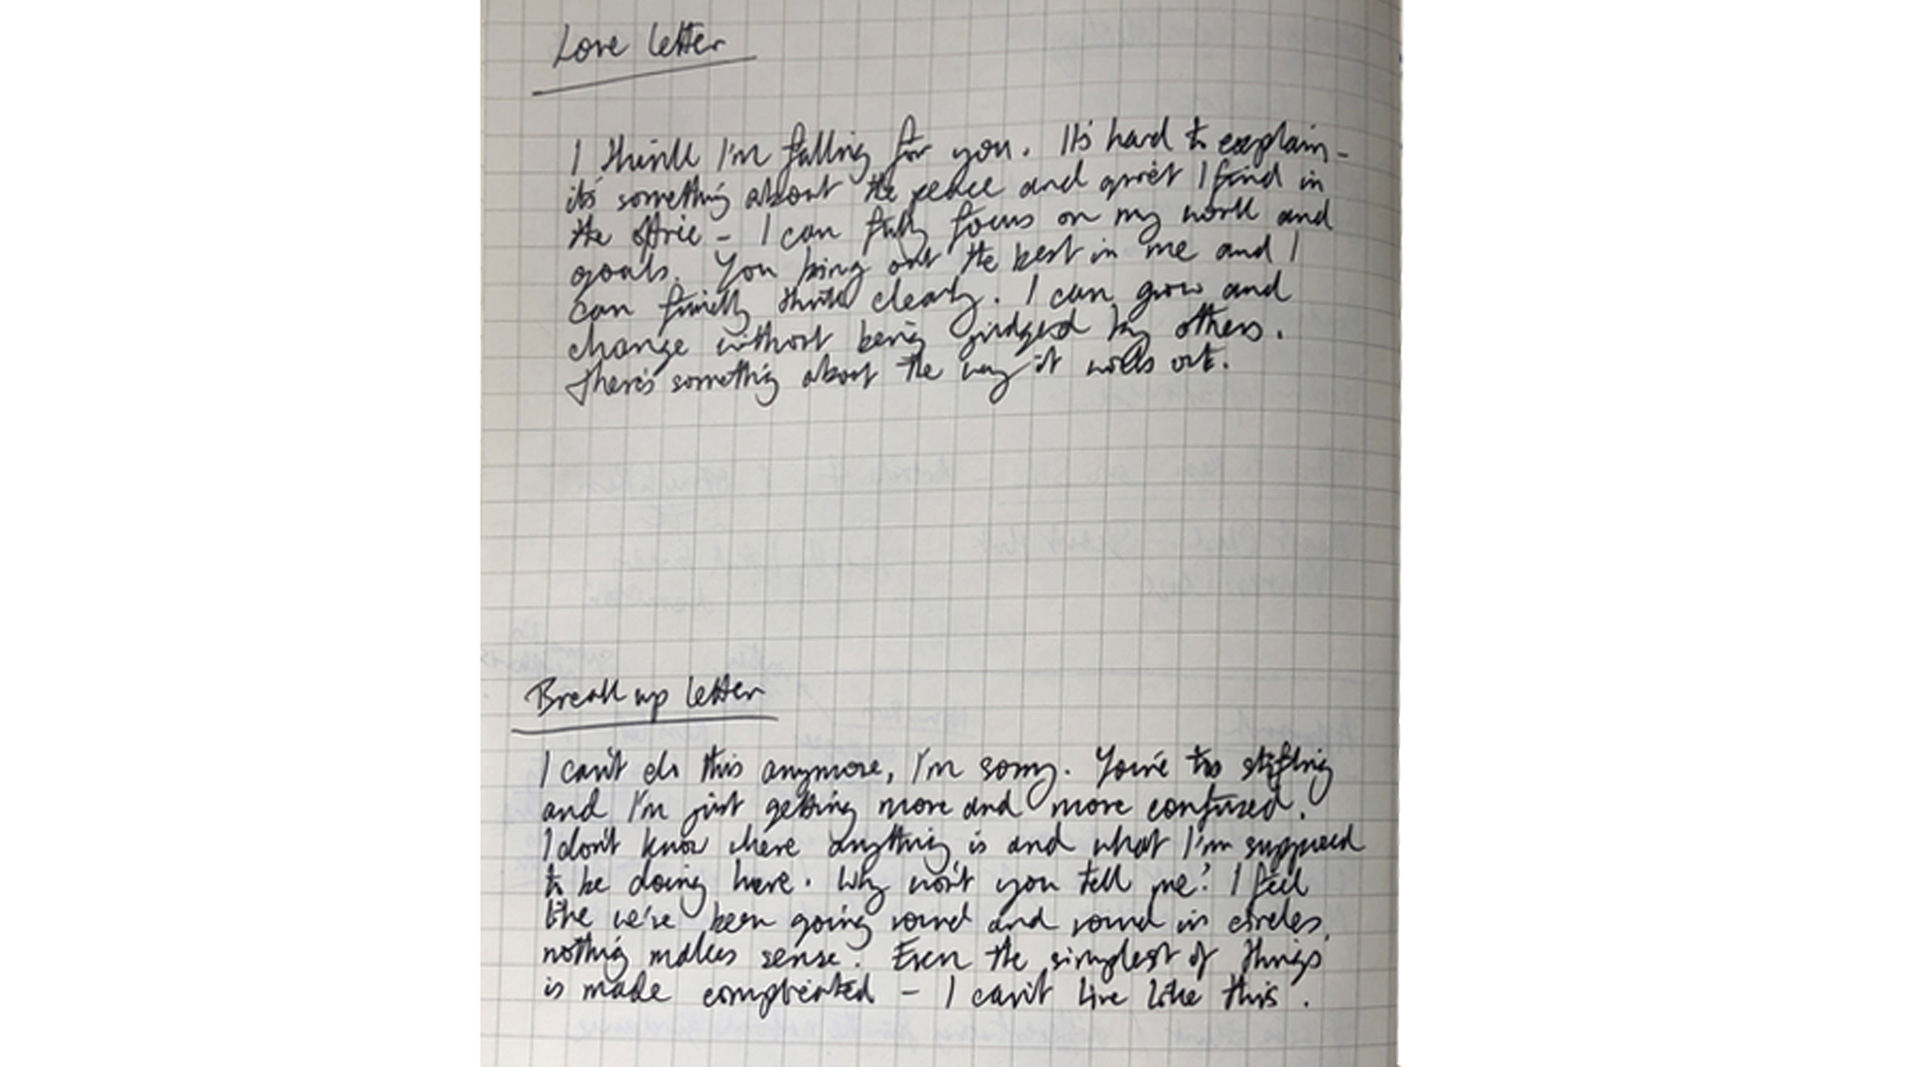 Love letter
I think I'm falling for you. It's hard to explain -
it's something about the peace and quiet I find in
the office - I can fully focus on my work and
goals. You bring out the best in me and I
can finally think clearly. I can grow and
change without being judged by others.
There's something about the way it works out.
Break up letter
I can't do this anymore, I'm sorry. You're too stifling
and I'm just getting more and more confused.
I don't know where anything is and what I'm supposed
to be doing here. Why won't you tell me? I feel
like we've been going round and round in circles,
nothing makes sense. Even the simplest of things
is made complicated - I can't live like this.